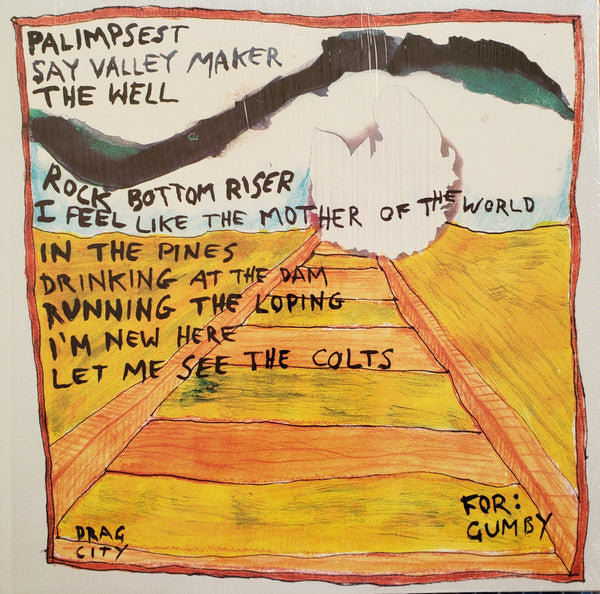 PALIMPSEST
SAY VALLEY MAKER
THE WELL
ROCK BOTTOM RISER
I FEEL LIKE THE MOTHER OF THE WORLD
IN THE PINES
DRINKING AT THE DAM
RUNNING THE LOPING
I'M NEW HERE
LET ME SEE THE COLTS
DRAG
CITY
FOR:
GUMBY